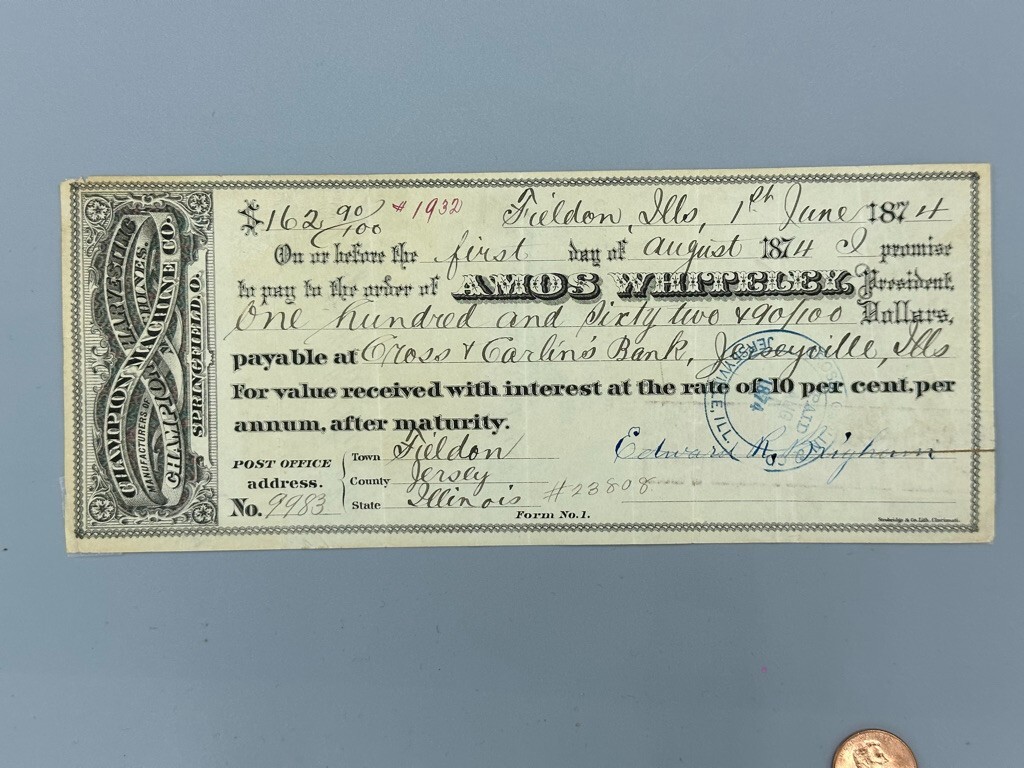 CHAMPION MACHINE CO.
MANUFACTURERS OF
CHAMPION HARVESTING MACHINES.
SPRINGFIELD, O.
$162 90/100 #1932 Fieldon, Ills, 1st June 1874
On or before the first day of august 1874 I promise
to pay to the order of AMOS WHITELEY, President,
One hundred and Sixty two & 90/100 Dollars,
payable at Cross & Carlin's Bank, Jerseyville, Ills
For value received with interest at the rate of 10 per cent, per
annum, after maturity.
POST OFFICE address.
Town Fieldon
County Jersey
State Illinois #23808
Edward R. Brigham
No. 9983
Form No. 1.
PAID
1874
JERSEYVILLE, ILL.